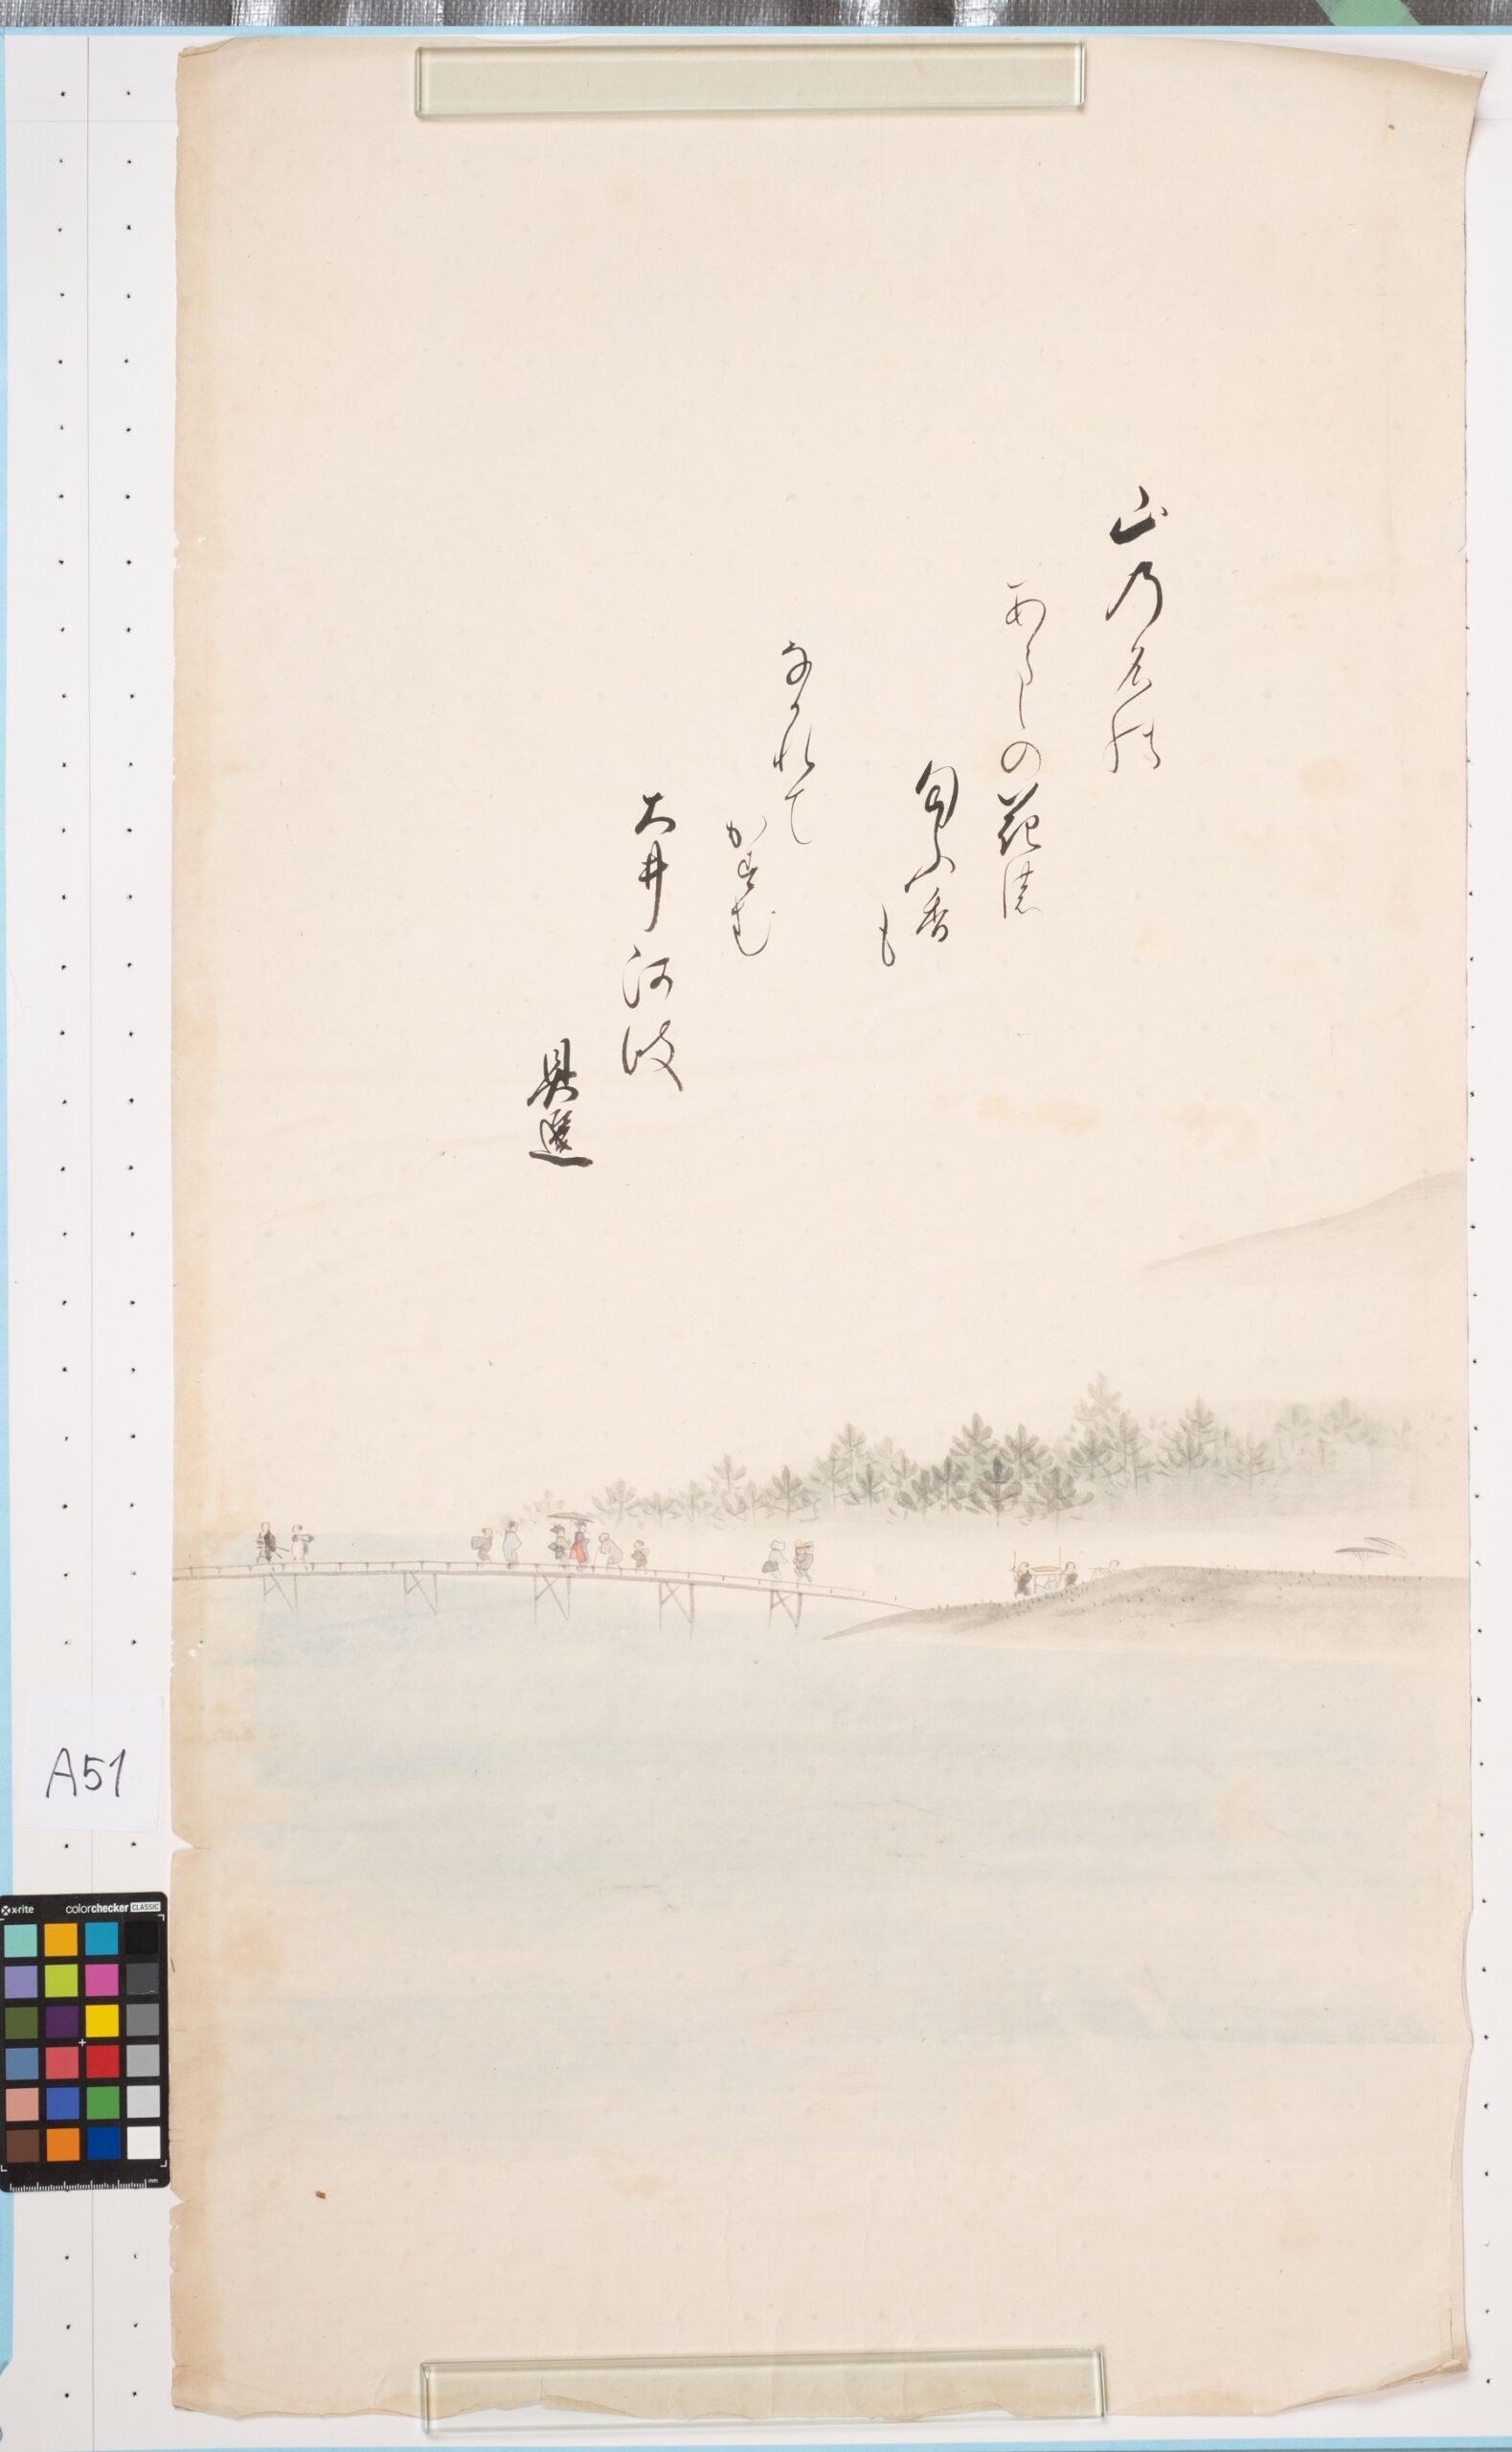 山乃名
あらしの花濃
匂ふ香
も
なかれて
かすむ
大井河波
具選
A51
x-rite colorchecker CLASSIC
mm